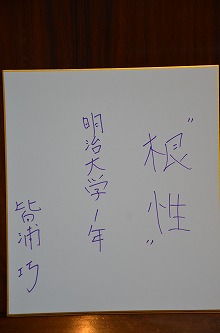 "根性"
明治大学1年
皆浦巧